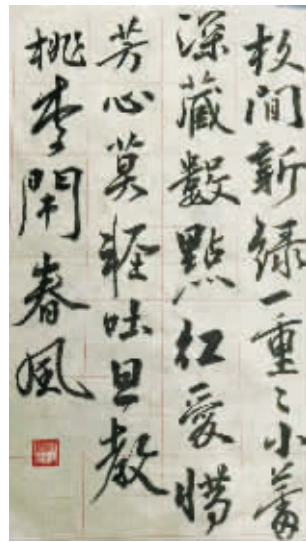 枝间新绿一重〻小蕾
深藏數點红愛惜
芳心莫輕吐且教
桃李閙春風